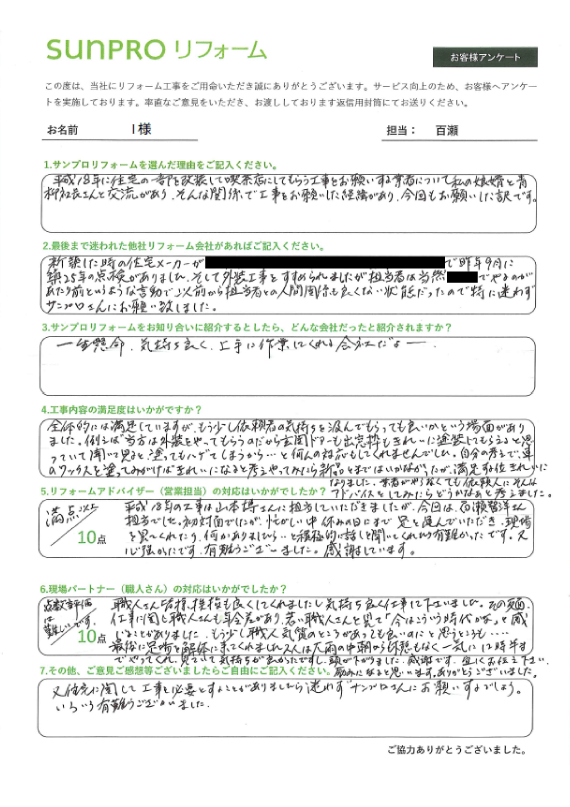 sunpro リフォーム
お客様アンケート
この度は、当社にリフォーム工事をご用命いただき誠にありがとうございます。サービス向上のため、お客様へアンケー
トを実施しております。率直なご意見をいただき、お渡ししております返信用封筒にてお送りください。
お名前 I様 担当： 百瀬
1.サンプロリフォームを選んだ理由をご記入ください。
平成18年に住宅の一部を改装して喫茶店にしてもらう工事をお願いする業者について私の娘婿と青
柳社長さんと交流があり、そんな関係で工事をお願いした経緯があり、今回もお願いした訳です。
2.最後まで迷われた他社リフォーム会社があればご記入ください。
新築した時の住宅メーカーが で昨年9月に
築25年の点検がありました。そして外装工事をすすめられましたが担当者は当然 でやるのが
あたり前というような言動で以前から担当者との人間関係も良くない状態だったので特に迷わず
サンプロさんにお願い致しました。
3.サンプロリフォームをお知り合いに紹介するとしたら、どんな会社だったと紹介されますか？
一生懸命、気持ち良く、上手に作業してくれる会社だよー。
4.工事内容の満足度はいかがですか？
全体的には満足していますが、もう少し依頼者の気持ちを汲んでもらっても良いかという場面があり
ました。例えば当方は外装をやってもらうのだから玄関ドアーも出窓枠もきれいに塗装してもらえると思
っていて聞いて見ると塗ってもハゲてしまうから…と何んの対応もしてくれませんでした。自分の考えで、車
のワックスを塗ってみがけばきれいになると考えやってみたら新品とまではいかないが、満足する位きれいに
なりました。業者がやらなくても依頼人にそんな
アドバイスをしてみたらどうかなあと考えました。
5.リフォームアドバイザー（営業担当）の対応はいかがでしたか？
満点です
10点
平成18年の工事は山本博さんに担当していただきましたが、今回は、百瀬 さん
担当でした。初対面でしたが、忙がしい中休みの日にまで足を運んでいただき、現場
を見てくれたり、何かありましたら…と積極的に話しを聞いてくれたり有難かったです。又
心強かったです。有難うございました。感謝しています。
6.現場パートナー（職人さん）の対応はいかがでしたか？
点数評価
は
難しいです。
10点
職人さん皆様、挨拶も良くしてくれましたし気持ち良く仕事して下さいました。その反面、
仕事に関し職人さんも年令差があり、若い職人さんを見て「今はこういう時代かな」と感
じることがありました。もう少し職人気質のところがあっても良いのにと思うところも・・・・
最後に足場を解体に来てくれました2人は大雨の中朝から休憩もなく一気に12時半ま
でやってくれ、見ていて気持ちが良かったですし、頭が下がりました。感謝です。宜しくお伝え下さい。
励みになると思います。ありがとうございました。
7.その他、ご意見ご感想等ございましたらご自由にご記入ください。
又住宅に関して工事を必要とすることがありましたら迷わずサンプロさんにお願いするでしょう。
いろいろ有難うございました。
ご協力ありがとうございました。